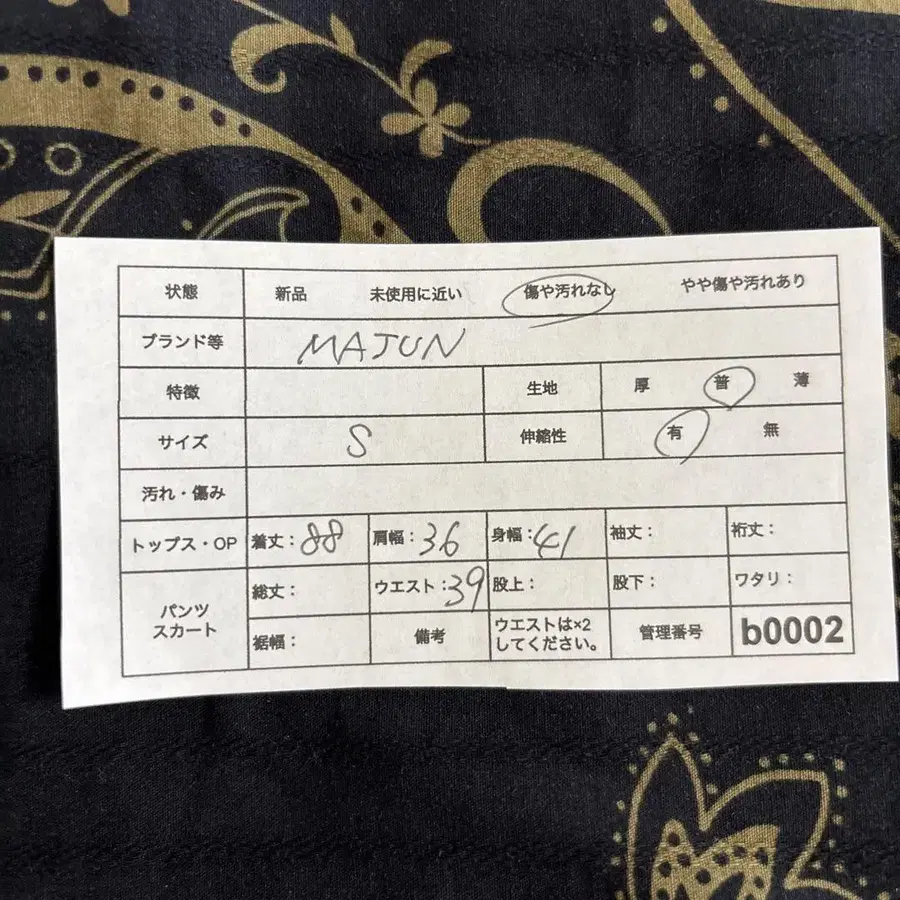 状態 新品 未使用に近い 傷や汚れなし やや傷や汚れあり
ブランド等 MAJUN
特徴 生地 厚 普 薄
サイズ S 伸縮性 有 無
汚れ・傷み
トップス・OP 着丈：88 肩幅：36 身幅：41 袖丈： 裄丈：
パンツ
スカート
総丈： ウエスト：39 股上： 股下： ワタリ：
裾幅： 備考 ウエストは×2
してください。
管理番号 b0002